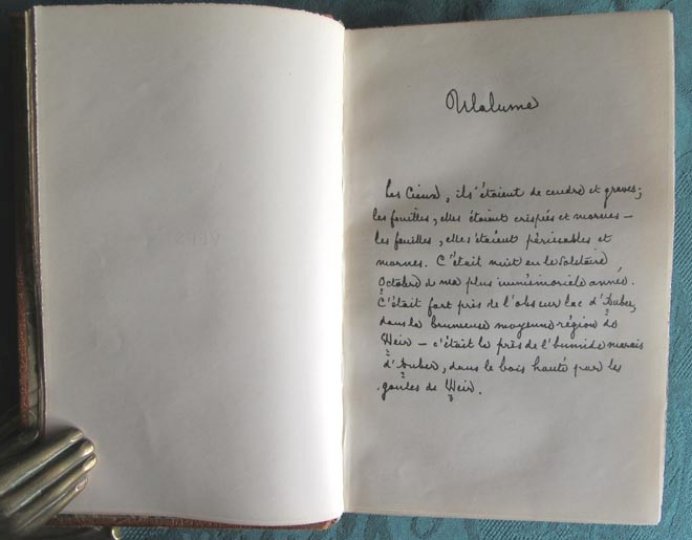 Ulalume
Les Cieux, ils étaient de cendre et graves;
les feuilles, elles étaient crispées et mornes –
les feuilles, elles étaient périssables et
mornes. C'était nuit en le solitaire
Octobre de ma plus immémoriale année.
C'était fort près de l'obscur lac d'Auber,
dans la brumeuse moyenne région de
Weir – c'était là près de l'humide marais
d'Auber, dans le bois hanté par les
goules de Weir.